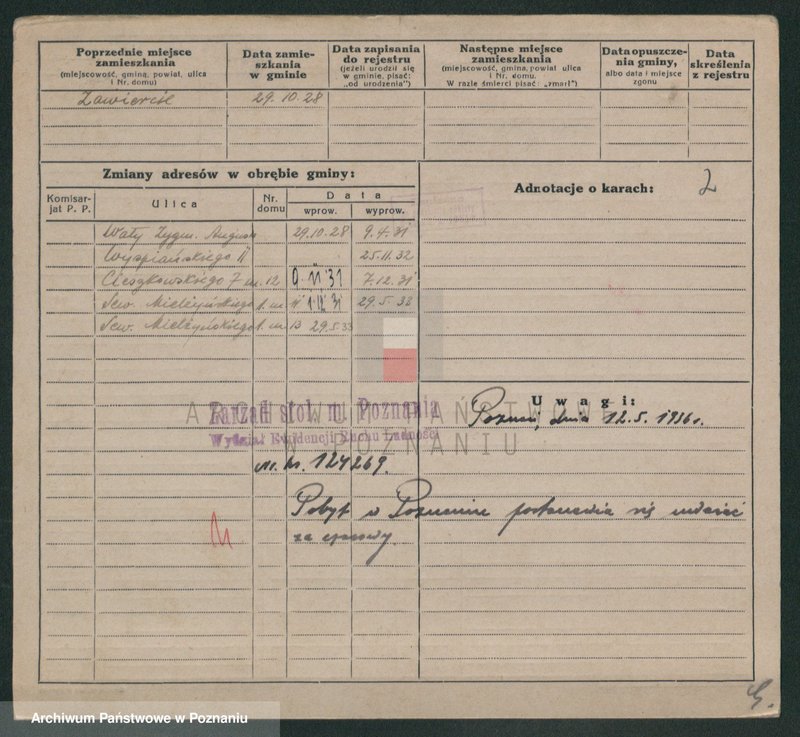 Poprzednie miejsce zamieszkania
(miejscowość, gmina, powiat, ulica i Nr. domu)
Data zamie-
szkania
w gminie
Data zapisania
do rejestru
(jeżeli urodził się
w gminie, pisać:
„od urodzenia")
Następne miejsce
zamieszkania
(miejscowość, gmina, powiat ulica
i Nr. domu.
W razie śmierci pisać: „zmarł")
Data opuszcze-
nia gminy,
albo data i miejsce
zgonu
Data
skreślenia
z rejestru
Zawiercie 29.10.28
Zmiany adresów w obrębie gminy:
Adnotacje o karach: 2
Komisar-
jat P. P.
Ulica
Nr.
domu
Data
wprow. wyprow.
Wały Zygm. Augusta 29.10.28 9.4.31
Wyspiańskiego 11 25.11.32
Cieszkowskiego 7 m. 12 9.11 31 7.12.31
Sew. Mielżyńskiego 1. m. 11 1.12 31 29.5.33
Sew. Mielżyńskiego 1. m. 13 29.5.33
Uwagi:
Zarząd stoł. m. Poznania
Wydział Ewidencji Ruchu Ludności
ARCHIWUM PAŃSTWOWE
W POZNANIU
Poznań, dnia 12.5.1936 r.
124269.
Pobyt w Poznaniu postanawia się uważać
za czasowy.
Archiwum Państwowe w Poznaniu